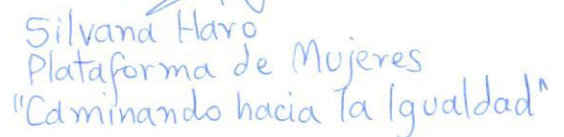 Silvana Haro
Plataforma de Mujeres
"Caminando hacia la Igualdad"